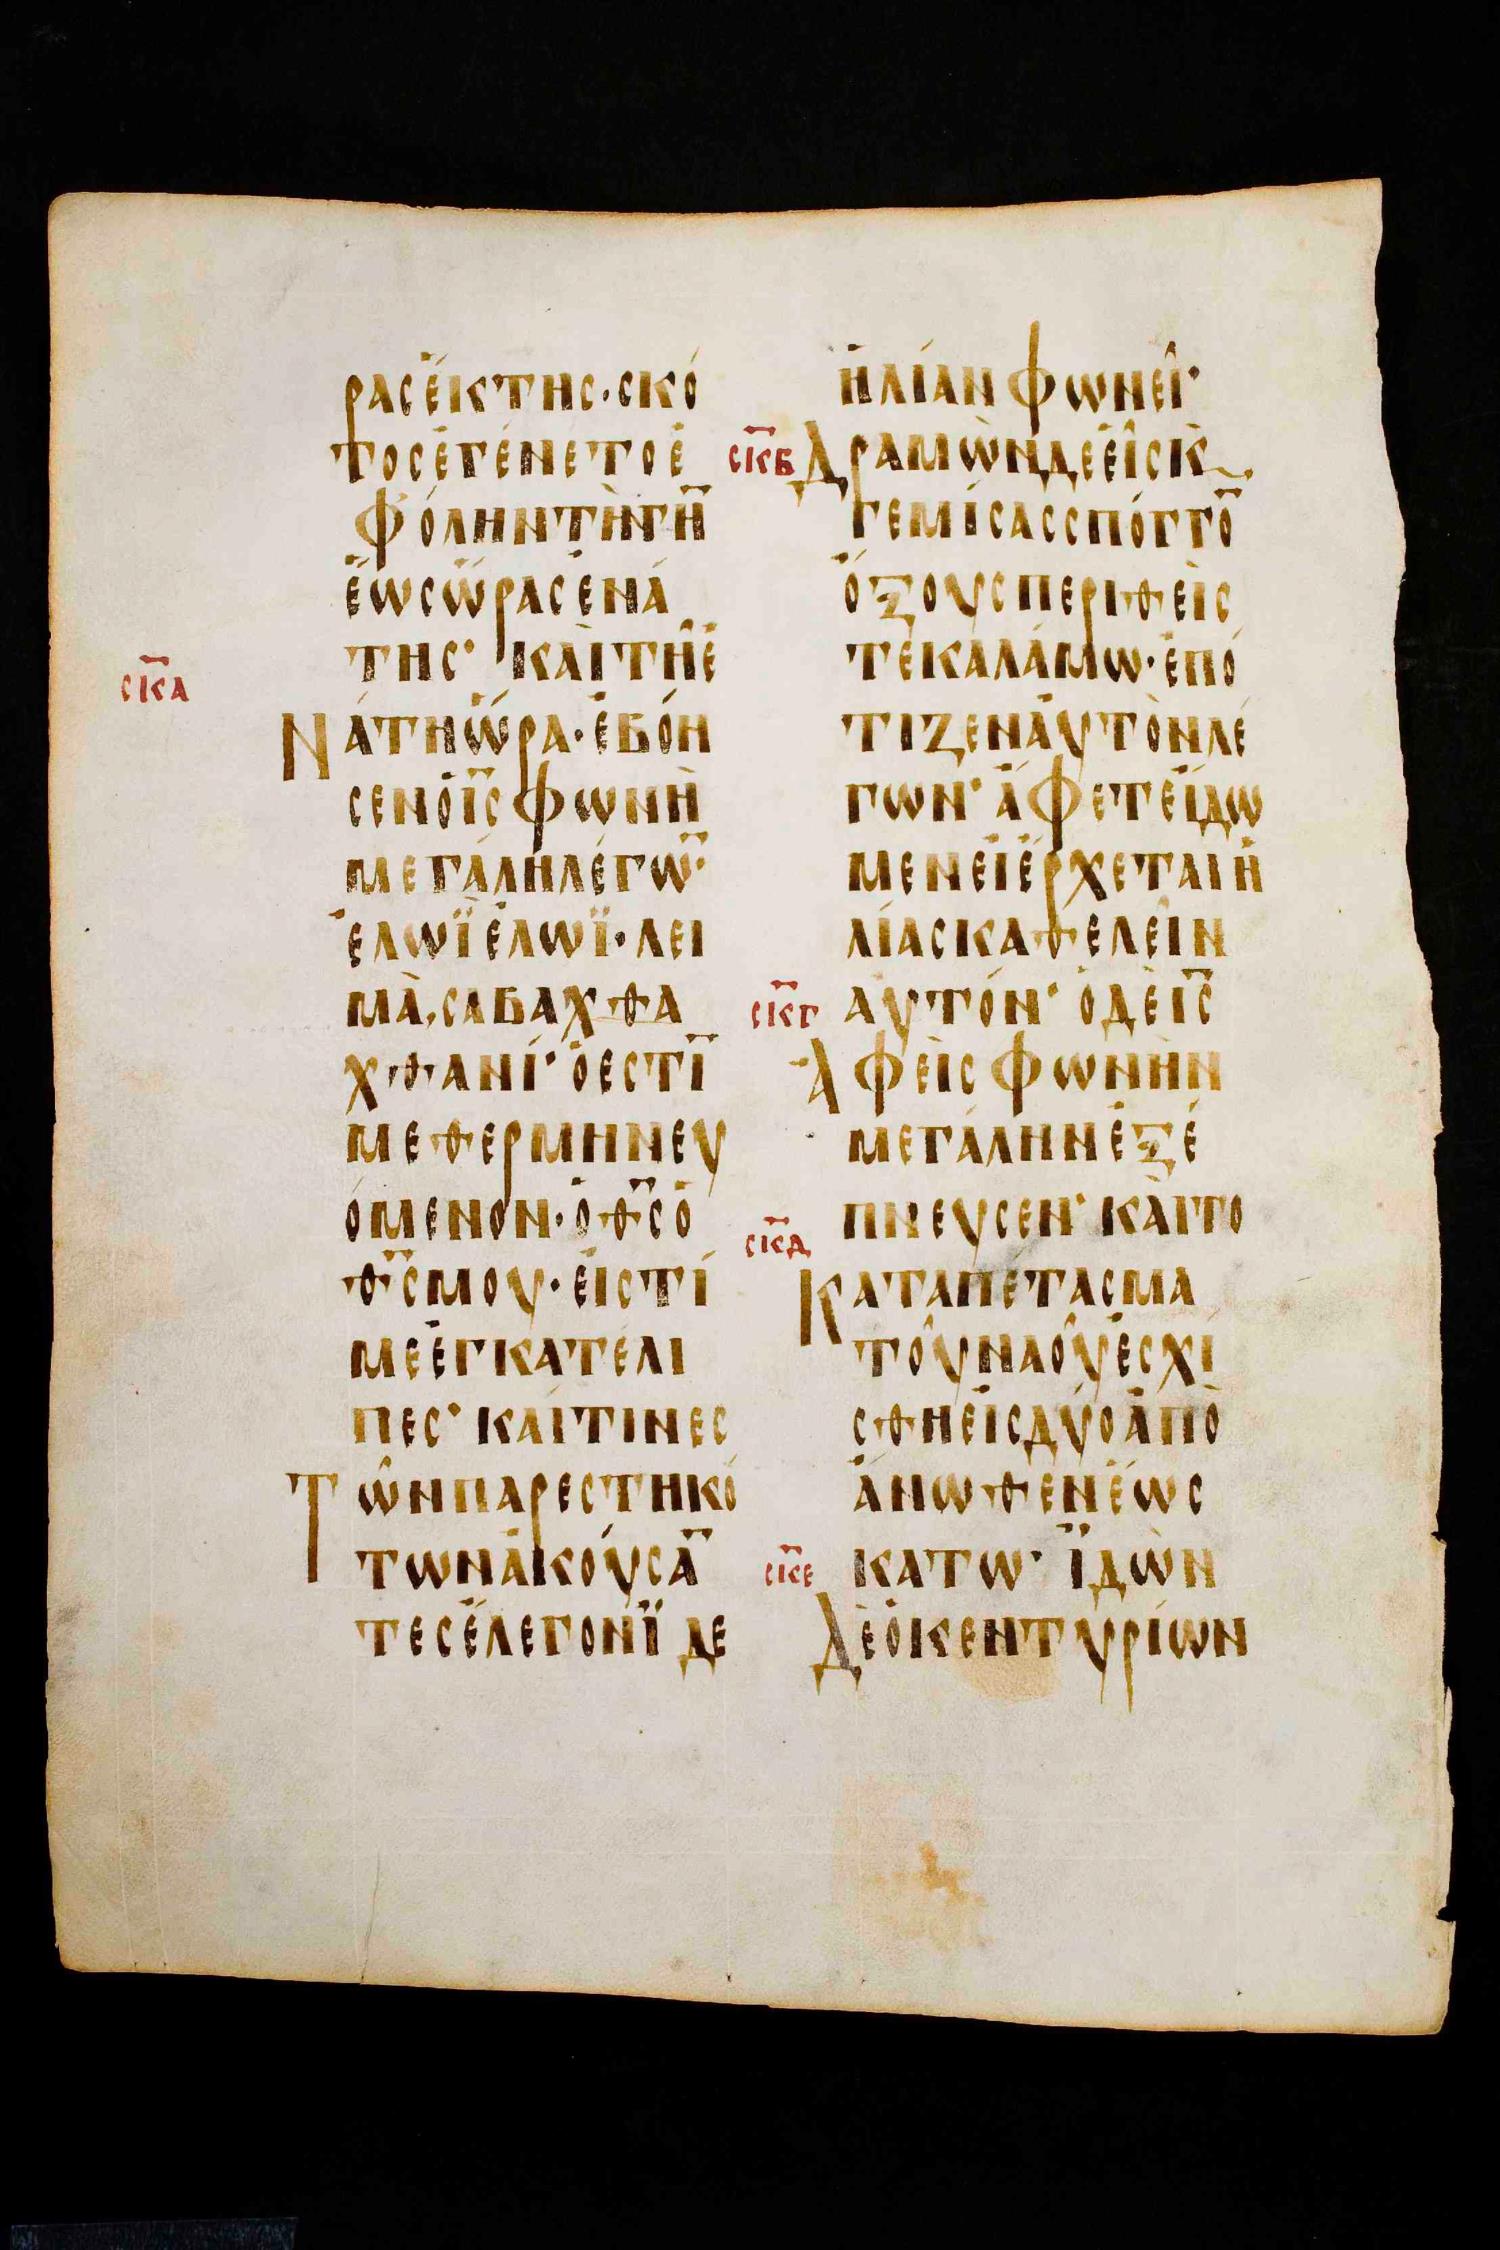 ρασἕκτης·σκό
τοςἐγένετοἐ
φόληντὴνγῆ̄
ἕωςὥραςἐνά
της· καὶτῆἐ
σκ̄α
Νάτηὥρα·ἐβόη
σενὁῑςφωνῆ
μεγάληλέγω̄·
ἐλωϊἐλωϊ·λει
μὰ,σαβαχθα
χθανί·ὅεστῑ
μεθερμηνευ
όμενον·ὁθ̄ςὁ
θ̄ςμου·εἰςτί
μεἐγκατέλι
πες· καίτινες
Τῶνπαρεστηκό
τωνἀκούσᾱ
τεςἔλεγονἴδε
ἡλίανφωνεῖ·
σκ̄β Δραμὼνδεεἷςκ̀
γεμίσαςσπόγγο̄
ὄξουςπεριθεὶς
τεκαλάμω·ἐπό
τιζεναὐτὸνλέ
γων· ἄφετεἴδω
μενεἰἔρχεταιἡ
λίαςκαθελεῖν
σκ̄γ αυτόν· ὁδὲῑς
Ἀφεὶςφωνὴν
μεγάληνἐξέ
πνευσεν· Καὶτο
σκ̄δ
Καταπέτασμα
τοῦναοῦἐσχί
σθηεἰςδύοἀπὸ
ἄνωθενἕως
σκ̄ε κατω· ἰδὼν
Δὲὁκεντυρίων